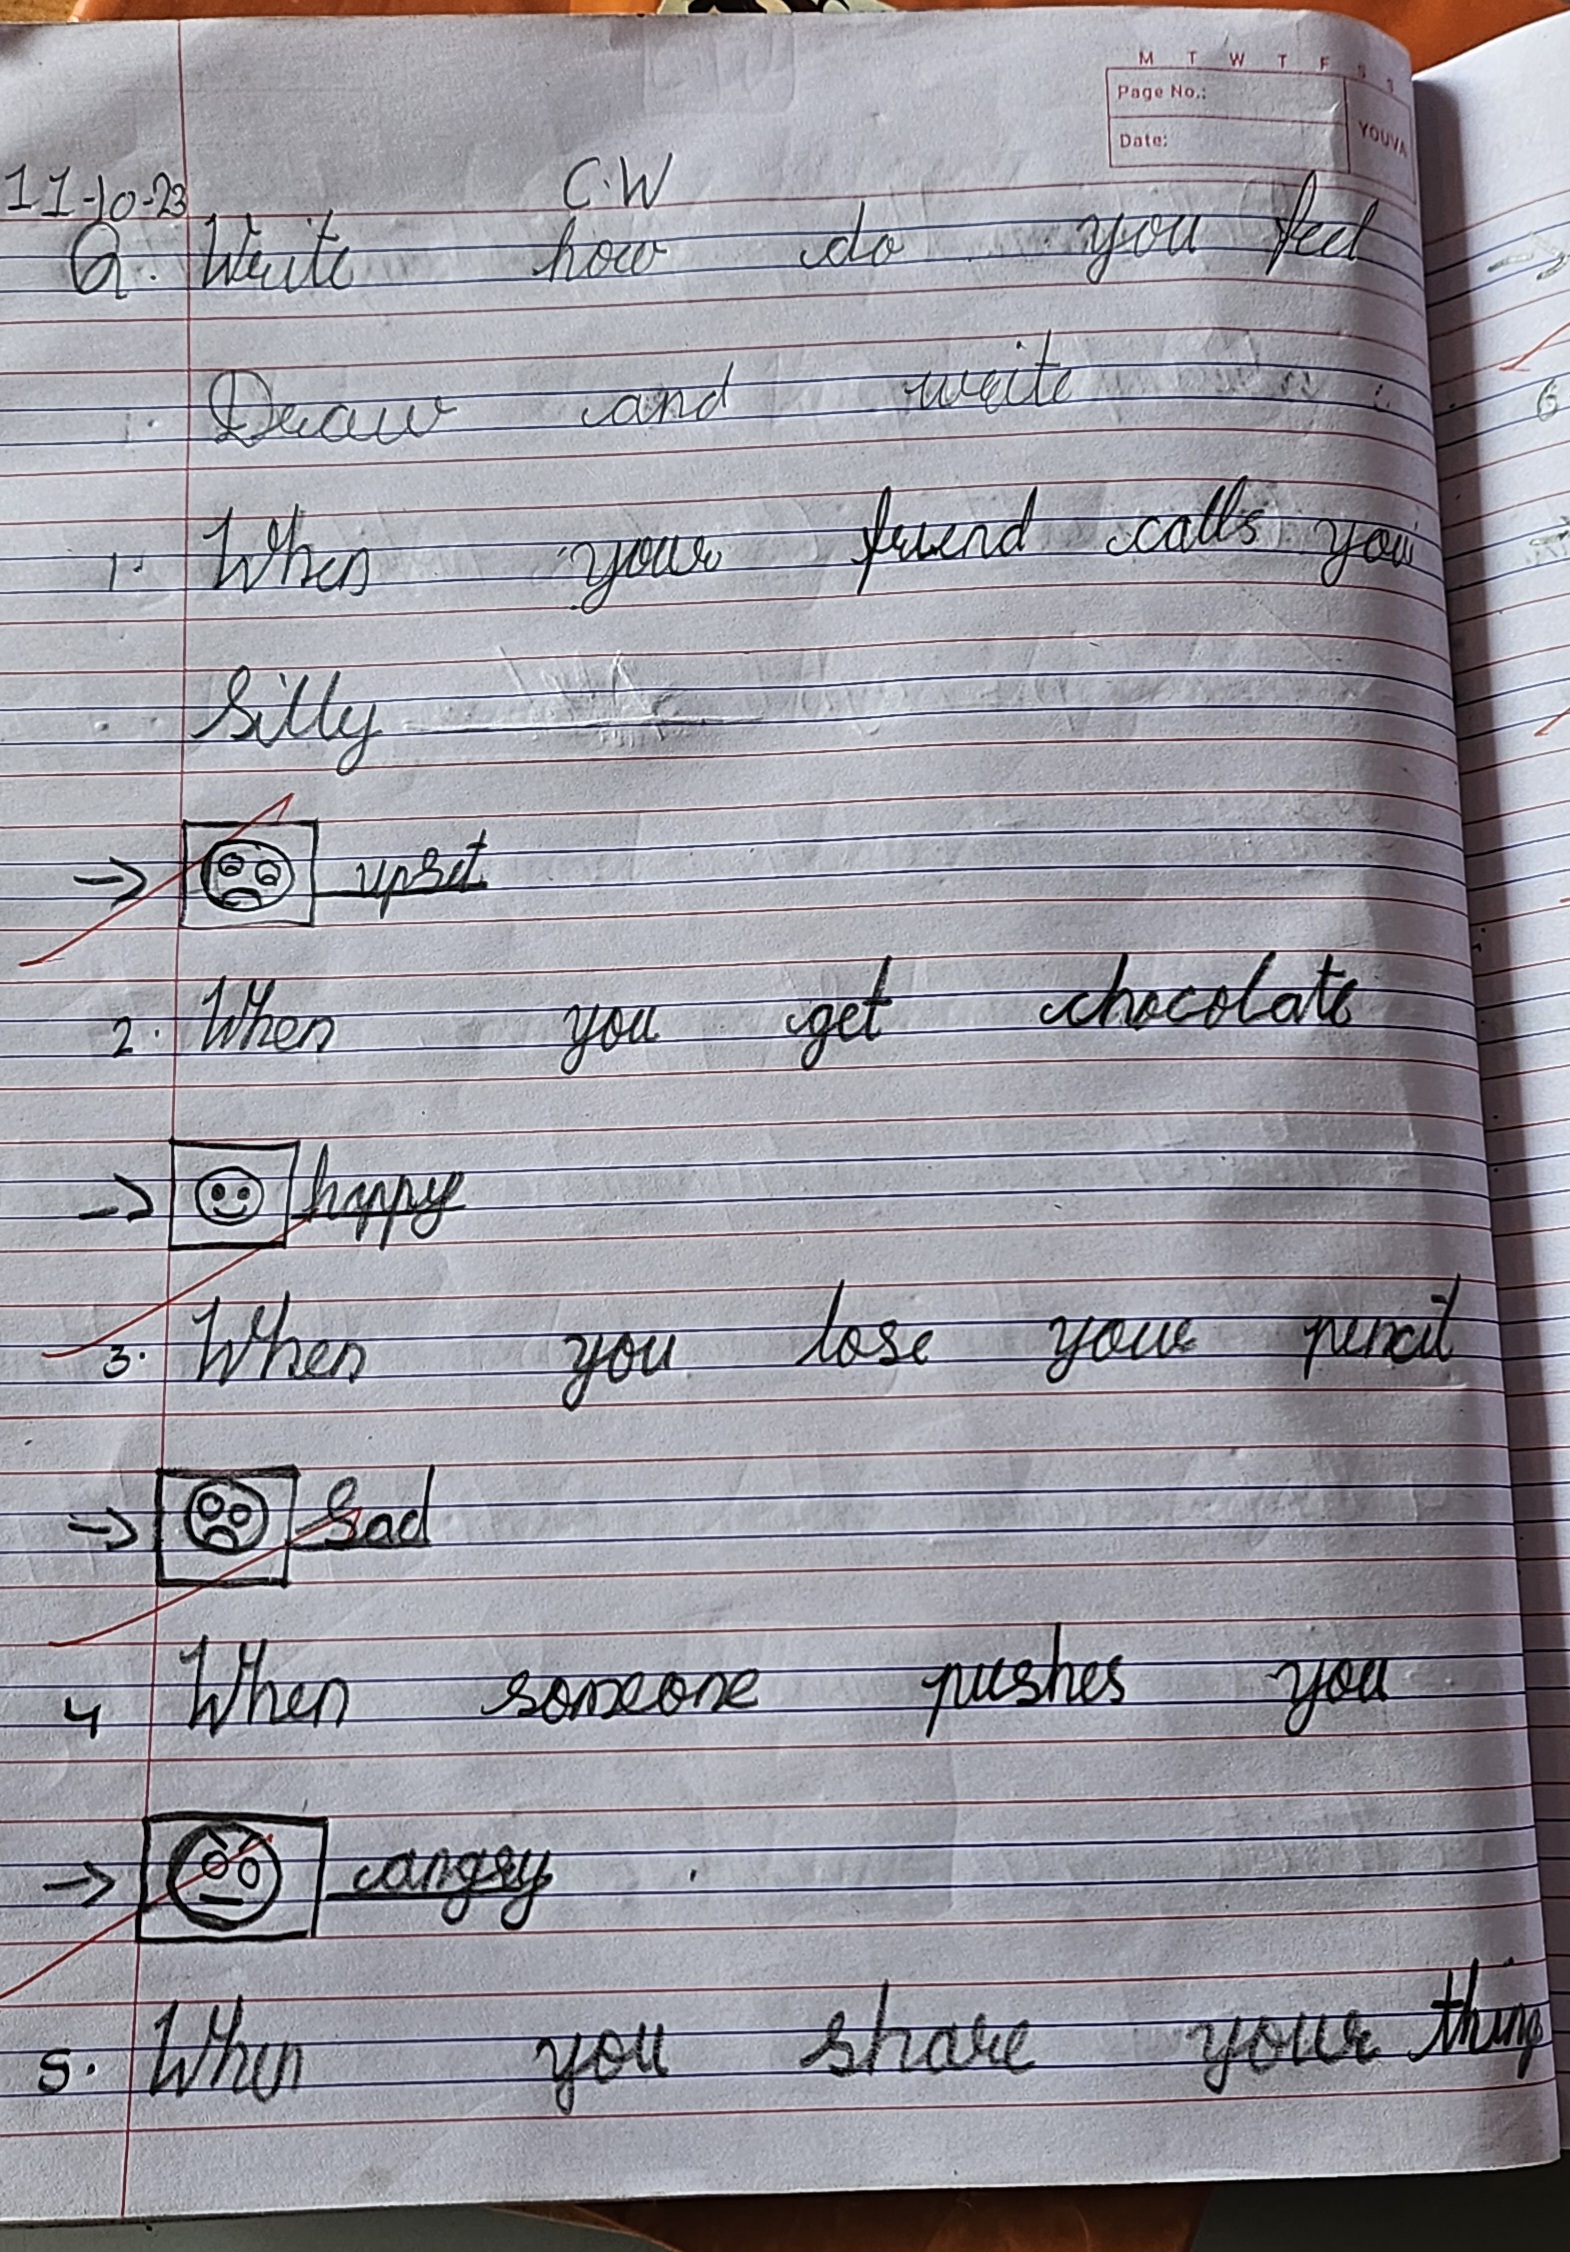 M T W T F S S
Page No.:
Date:
YOUVA
11-10-23 C.W
Q. Write how do you feel
Draw and write
1. When your friend calls you
Silly
→ upset
2. When you get chocolate
→ happy
3. When you lose your pencil
→ Sad
4 When someone pushes you
→ angry
5. When you share your thing